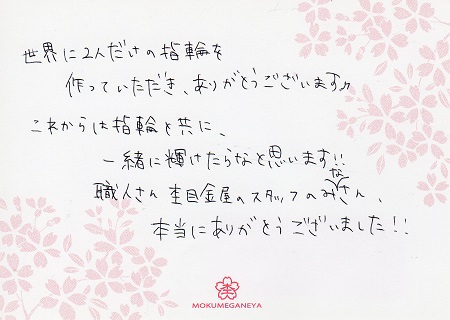 世界に2人だけの指輪を
作っていただき、ありがとうございます♪
これからは指輪と共に、
一緒に輝けたらなと思います!!
職人さん 杢目金屋のスタッフのみなさん、
本当にありがとうございました!!
MOKUMEGANEYA